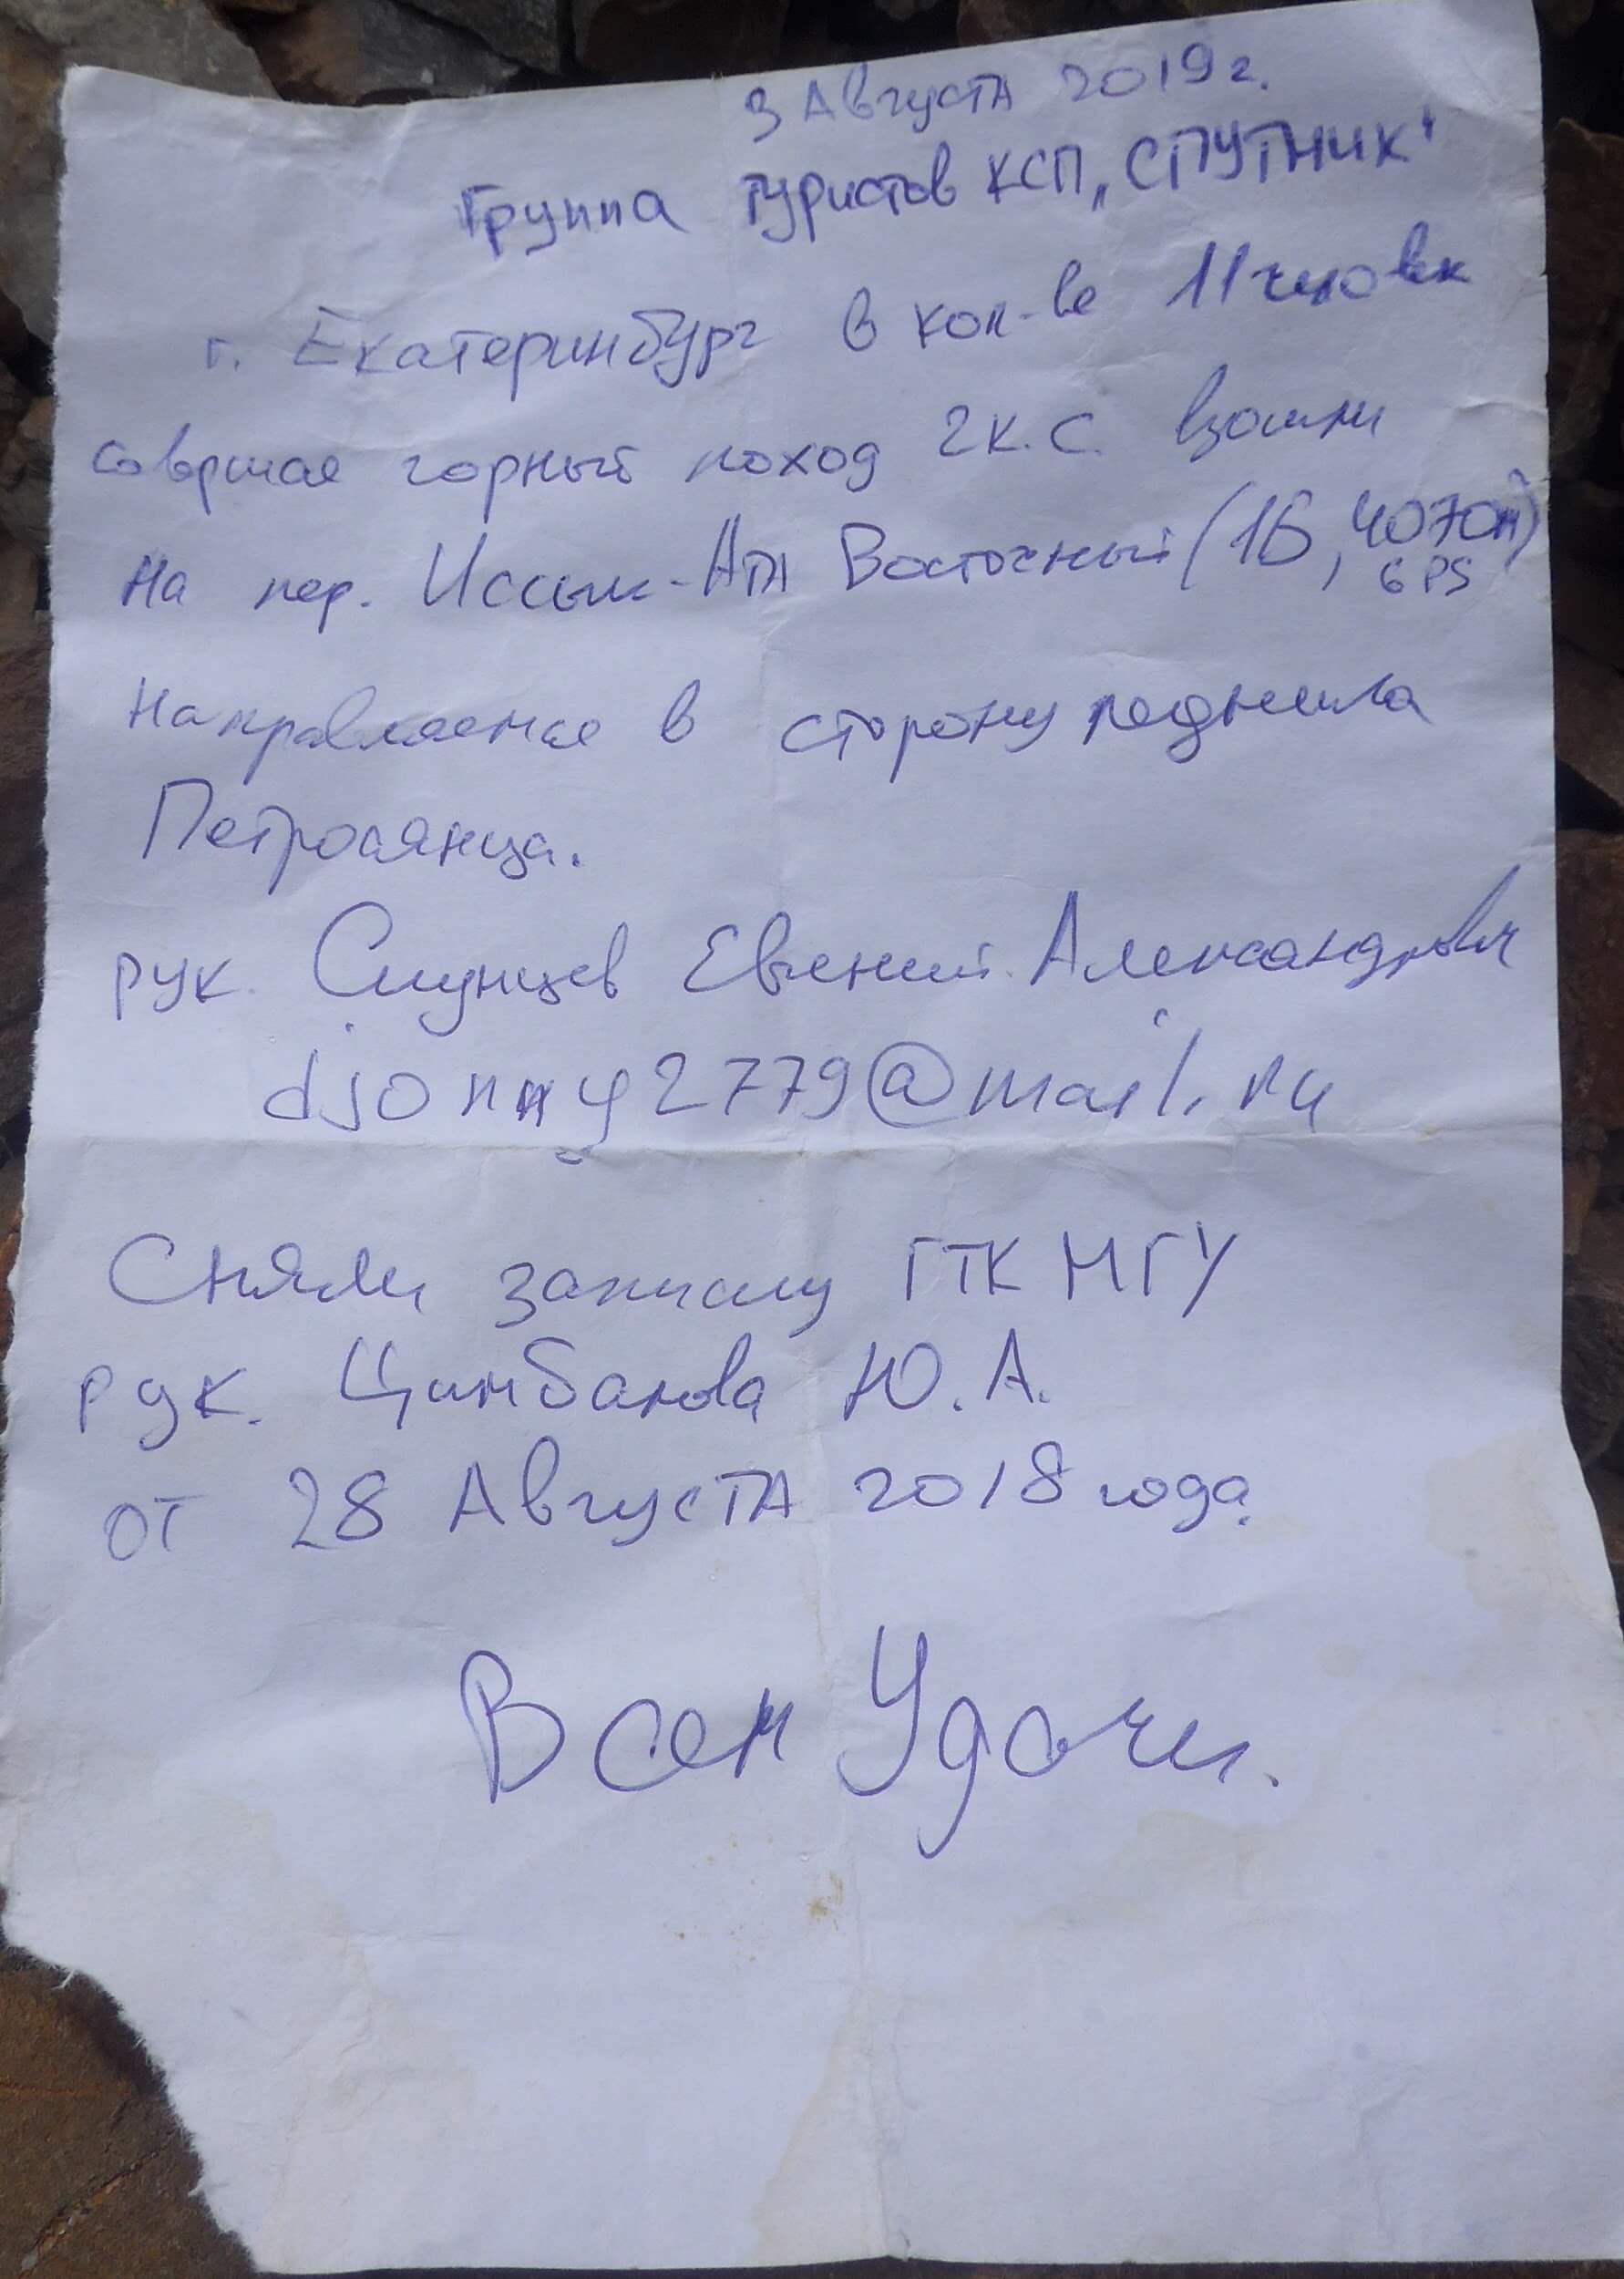 3 Августа 2019 г.
Группа туристов КСП „СПУТНИК"
г. Екатеринбург в кол-ве 11 человек
совершая горный поход 2 к.с. взошли
на пер. Иссык-Ата Восточный (1Б, 4070м)
GPS
Направляемся в сторону ледника
Петросянца.
рук. Евгений Александрович
djonny2779@mail.ru
Сняли записку ГТК МГУ
рук. Цимбалова Ю. А.
от 28 Августа 2018 года.
Всем Удачи.